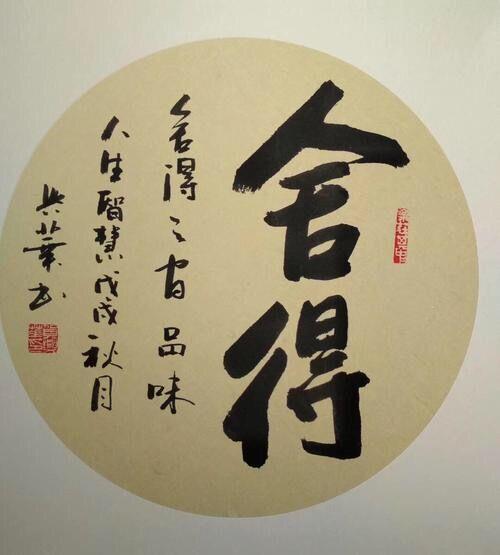 舍得
舍得之间品味
人生智慧戊戌秋月
兴業书